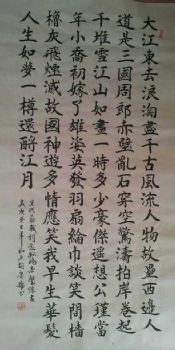 大江東去浪淘盡千古風流人物故壘西邊人
道是三國周郎赤壁亂石穿空驚濤拍岸卷起
千堆雪江山如畫一時多少豪傑遙想公瑾當
年小喬初嫁了雄姿英發羽扇綸巾談笑間檣
櫓灰飛煙滅故國神遊多情應笑我早生華髮
人生如夢一樽還酹江月
念奴嬌赤壁懷古